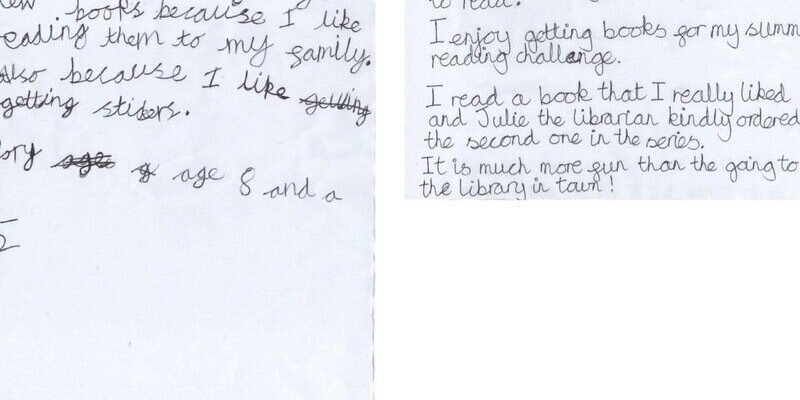 books because I like
eading them to my family.
Also because I like getting
getting stikers.
ory age g age 8 and a
2
to read.
I enjoy getting books for my summ
reading challenge.
I read a book that I really liked
and Julie the librarian kindly ordered
the second one in the series.
It is much more fun than the going to
the library in town!